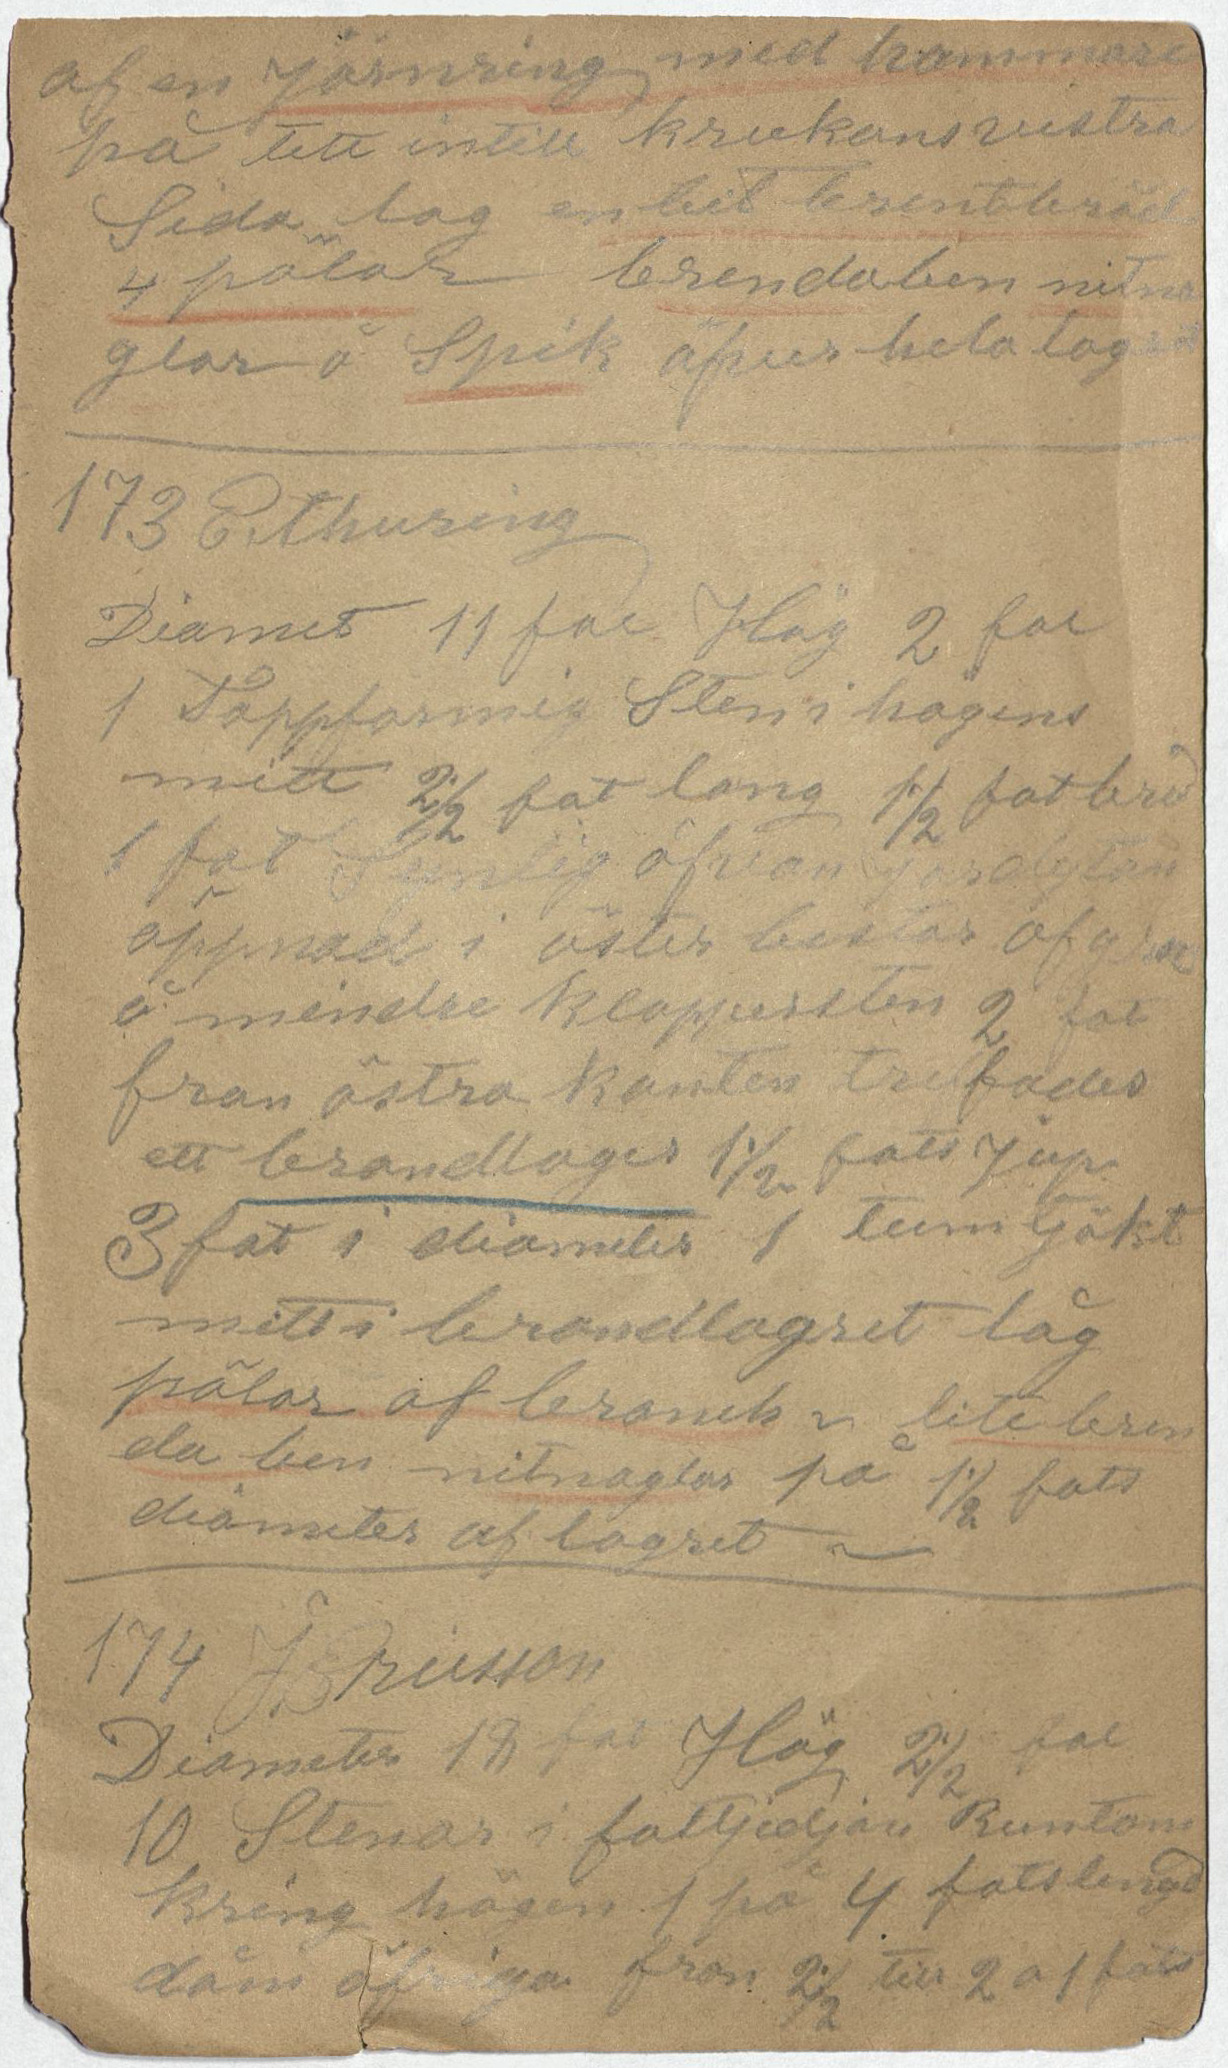 af en Järnring med hammare
på tett intill krukans vestra
Sida lag en bit brentbröd
4 pälar brenda ben nitna
glar å Spik öfver hela lagret
173 E. Thuring
Diamet 11 fot Hög 2 fot
1 Toppformig Sten i högens
mitt 2 1/2 fot lang 1 1/2 fot bred
1 fot Synlig öfvan jordytan
öppnad i öster bestar af grus
å mindre klappersten 2 fot
fran östra kanten trefades
ett brandlager 1 1/2 fots Jup
3 fot i diameter 1 tum tjokt
mitt i brandlagret låg
pälar af brons lite bren
da ben nitnaglar på 1 1/2 fots
diameter af lagret
174 J Ericsson
Diameter 18 fot Hög 2 1/2 fot
10 Stenar i fotkjedjan Runtom
kring högen 1 på 4 fots lengd
döm öfriga fron 2 1/2 till 2 a 1 fots